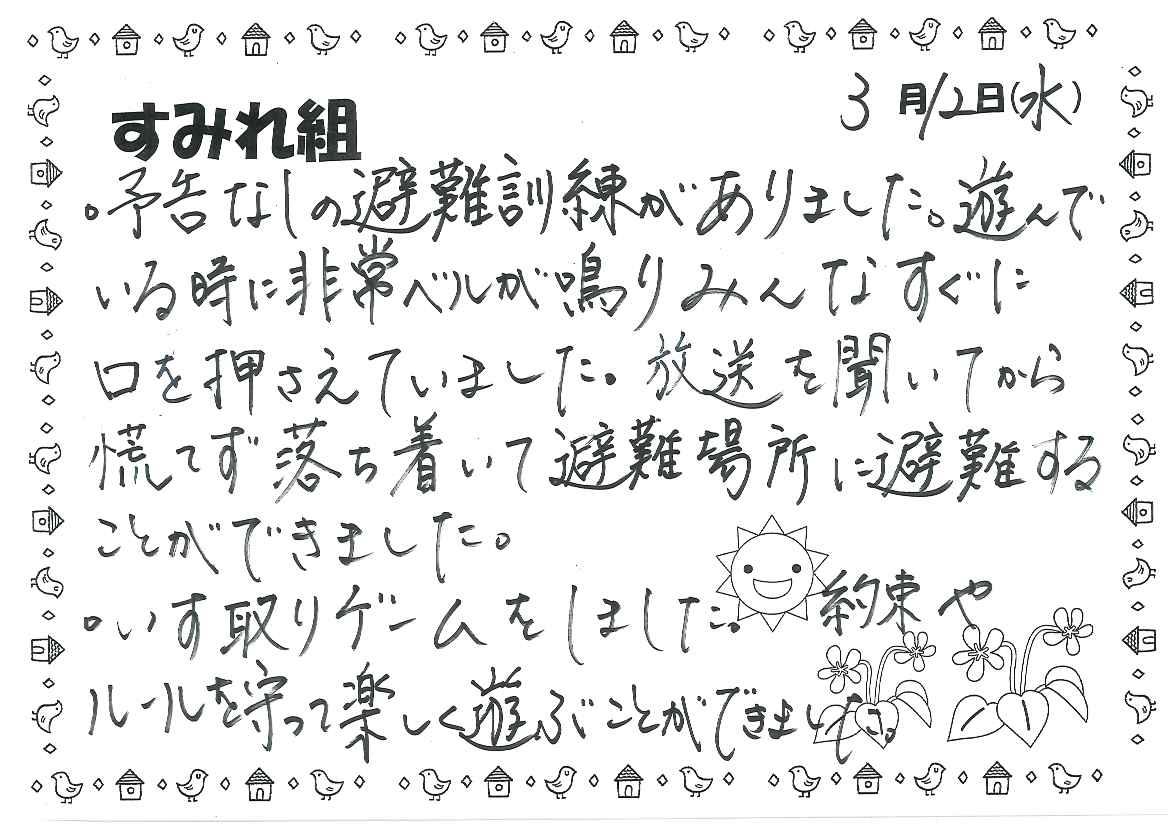 3月12日(水)
すみれ組
。予告なしの避難訓練がありました。遊んで
いる時に非常ベルが鳴りみんなすぐに
口を押さえていました。放送を聞いてから
慌てず落ち着いて避難場所に避難する
ことができました。
。いす取りゲームをしました。約束や
ルールを守って楽しく遊ぶことができました。